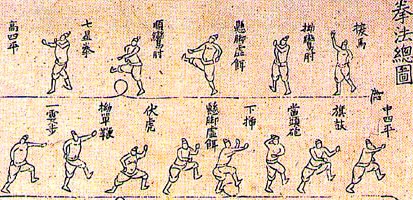 拳法總圖
探馬
拗鸞肘
懸脚虛餌
順鸞肘
七星拳
高四平
中四平
旗鼓
當頭砲
下揷
懸脚虛餌
伏虎
拗單鞭
一霎步